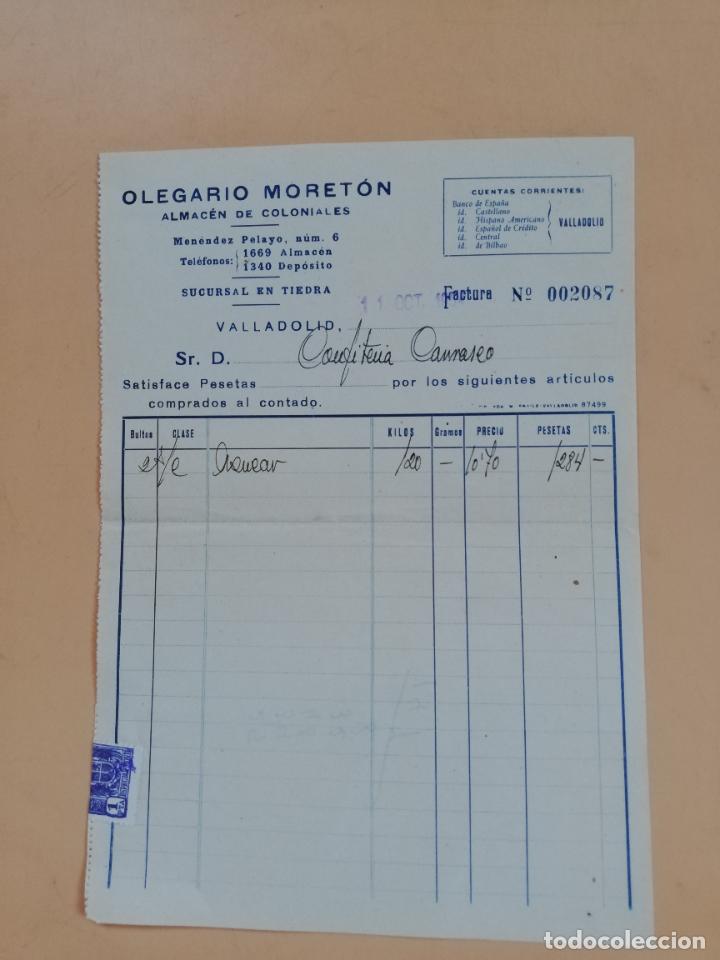 OLEGARIO MORETÓN
ALMACÉN DE COLONIALES
Menéndez Pelayo, núm. 6
Teléfonos: 1669 Almacén
1340 Depósito
SUCURSAL EN TIEDRA
CUENTAS CORRIENTES:
Banco de España
id. Castellano
id. Hispano Americano
id. Español de Crédito
id. Central
id. de Bilbao
VALLADOLID
11 OCT.
Factura Nº 002087
VALLADOLID,
Sr. D. Confiteria Carrasco
Satisface Pesetas por los siguientes artículos
comprados al contado.
VALLADOLID 87499
Bultos CLASE KILOS Gramos PRECIO PESETAS CTS.
2 s/c Azucar 120 — 10'70 1284 —
1
PTA
todocoleccion
todocoleccion.net